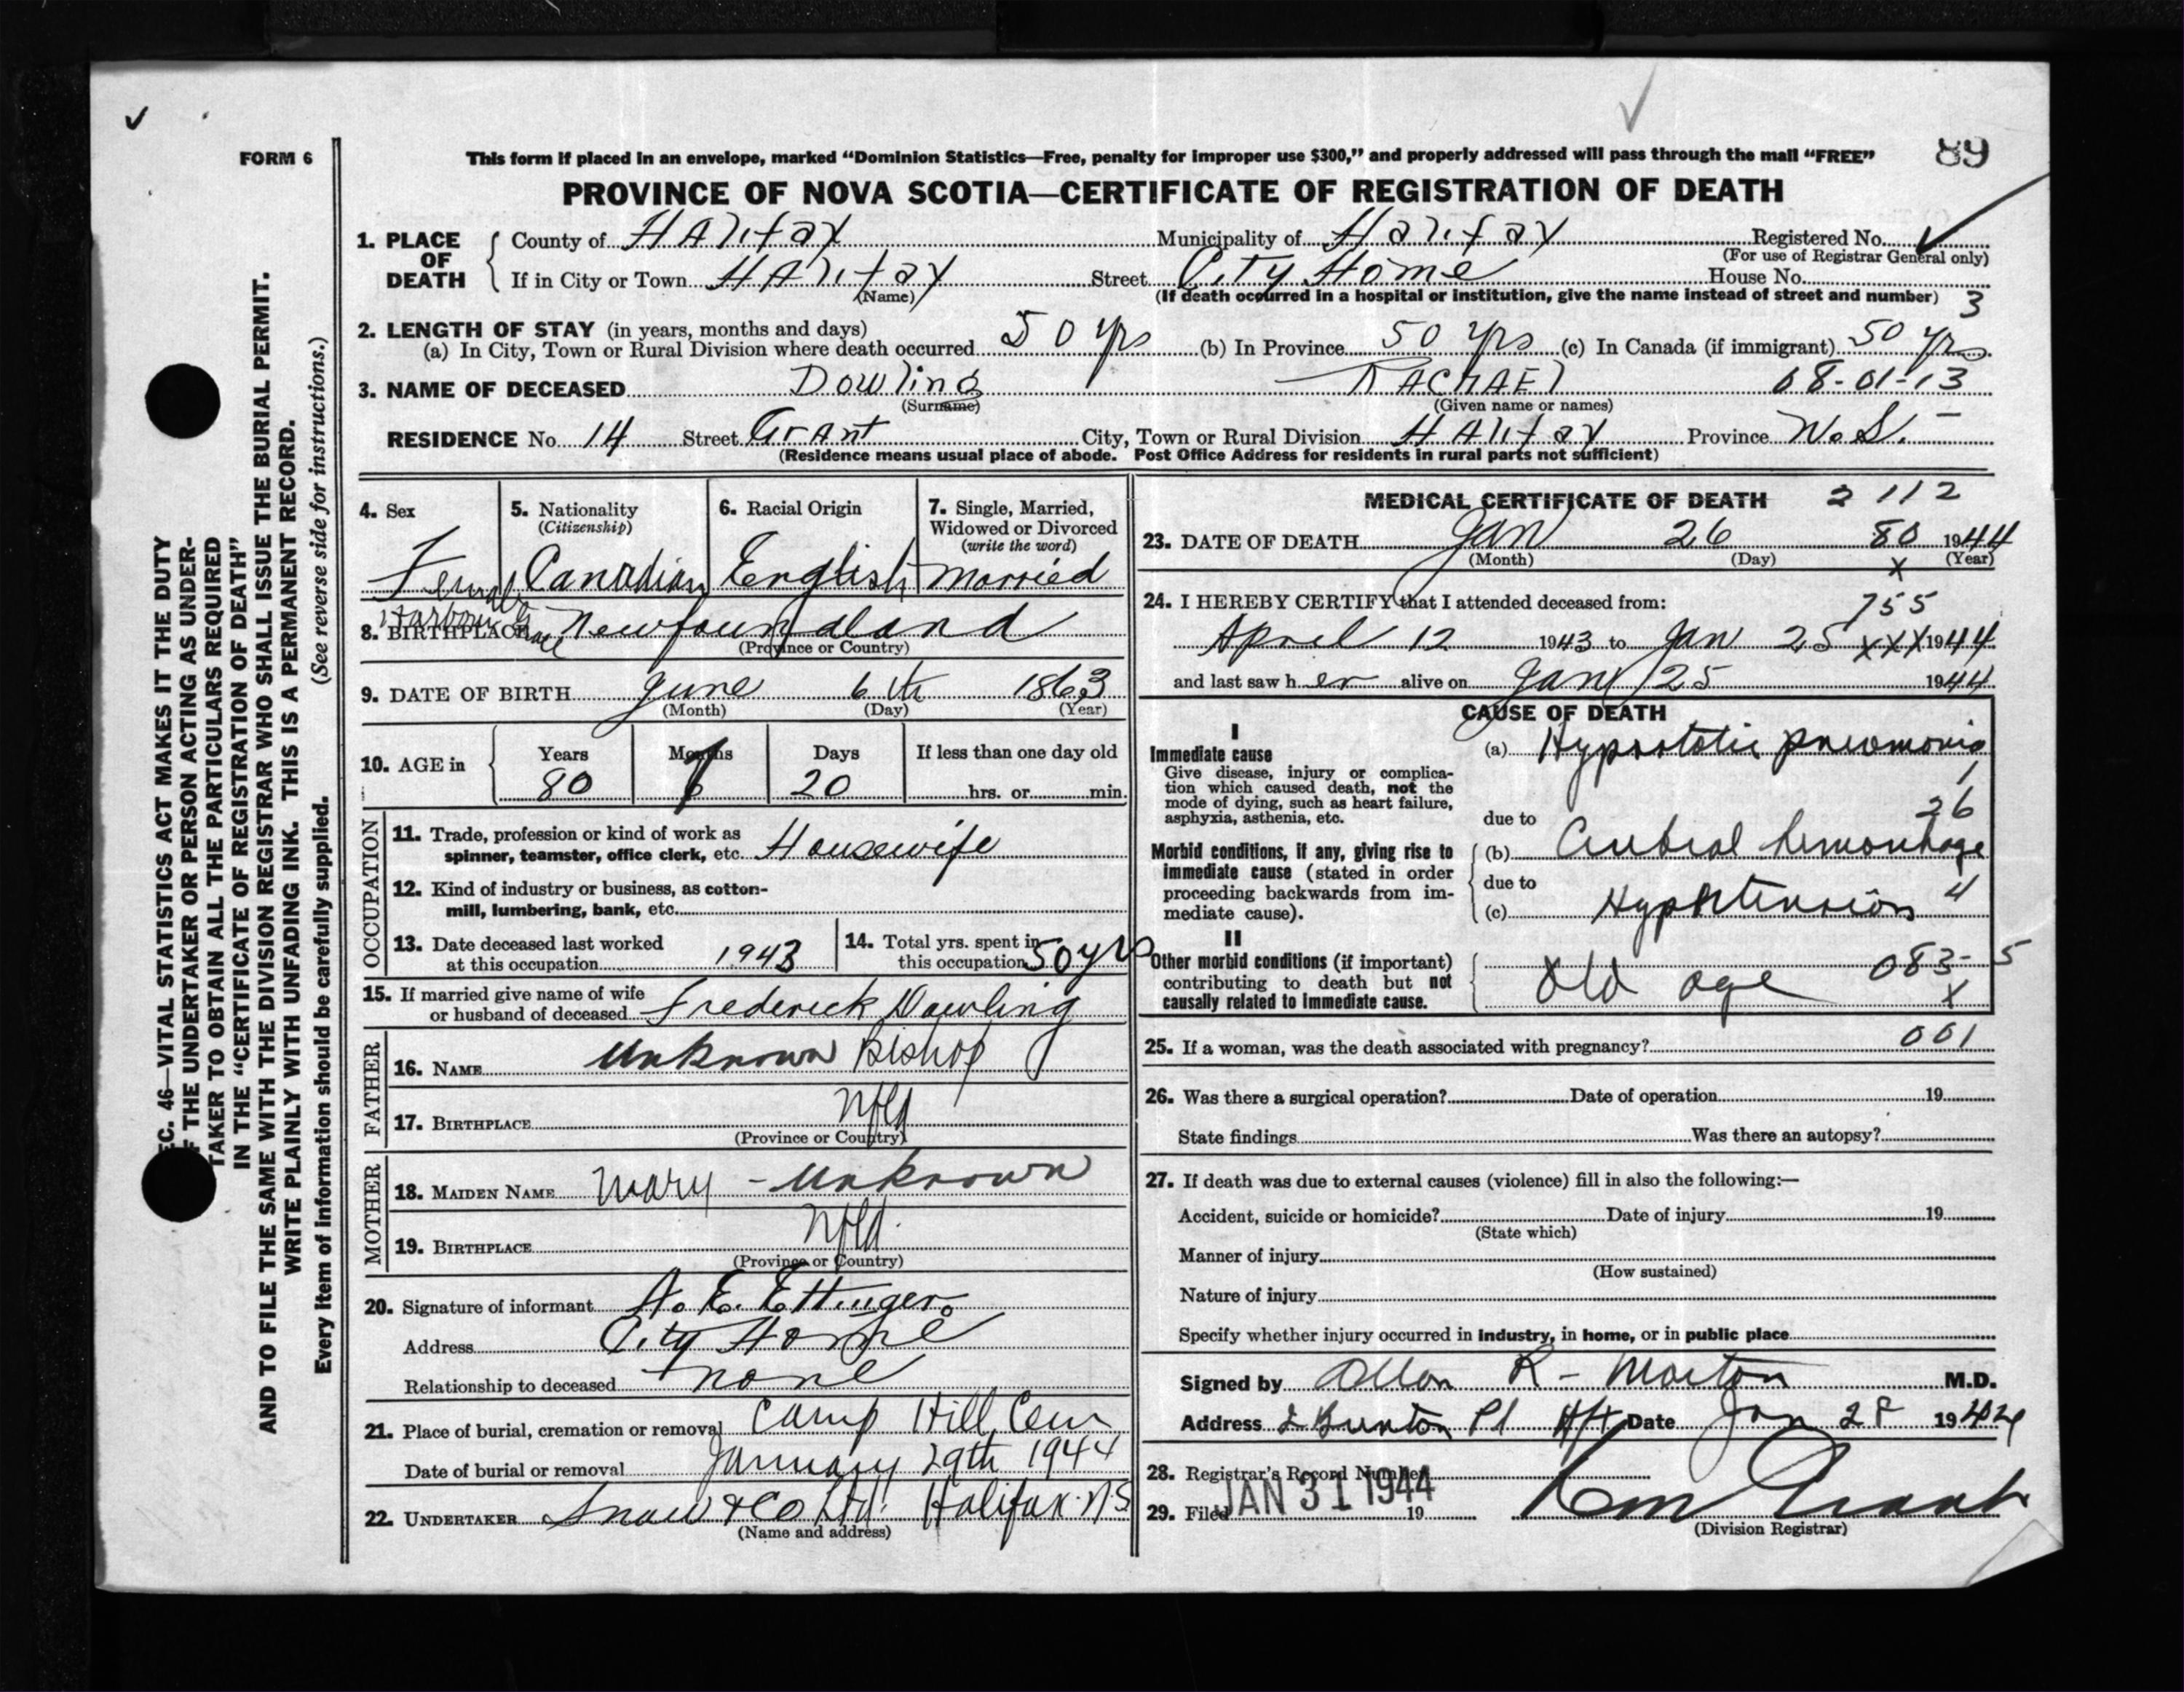 89
FORM 6
This form if placed in an envelope, marked “Dominion Statistics—Free, penalty for improper use $300,” and properly addressed will pass through the mail “FREE”
PROVINCE OF NOVA SCOTIA—CERTIFICATE OF REGISTRATION OF DEATH
1. PLACE OF DEATH County of Halifax Municipality of Halifax Registered No.
(For use of Registrar General only)
If in City or Town Halifax Street City Home House No.
(Name) (If death occurred in a hospital or institution, give the name instead of street and number) 3
2. LENGTH OF STAY (in years, months and days)
(a) In City, Town or Rural Division where death occurred 50 yrs (b) In Province 50 yrs (c) In Canada (if immigrant) 50 yrs
3. NAME OF DECEASED Dowling RACHAEl 08-01-13
(Surname) (Given name or names)
RESIDENCE No. 14 Street Grant City, Town or Rural Division Halifax Province N.S.
(Residence means usual place of abode. Post Office Address for residents in rural parts not sufficient)
4. Sex 5. Nationality (Citizenship) 6. Racial Origin 7. Single, Married, Widowed or Divorced (write the word)
Female Canadian English married
8. BIRTHPLACE Harbour Grace Newfoundland
(Province or Country)
9. DATE OF BIRTH June 6th 1863
(Month) (Day) (Year)
10. AGE in Years Months Days If less than one day old
80 20 hrs. or min.
OCCUPATION
11. Trade, profession or kind of work as spinner, teamster, office clerk, etc. Housewife
12. Kind of industry or business, as cotton-
mill, lumbering, bank, etc.
13. Date deceased last worked at this occupation 1943 14. Total yrs. spent in this occupation 50 yrs
15. If married give name of wife or husband of deceased Frederick Dowling
FATHER
16. NAME Unknown Bishop
17. BIRTHPLACE Nfld
(Province or Country)
MOTHER
18. MAIDEN NAME Mary - Unknown
19. BIRTHPLACE Nfld.
(Province or Country)
20. Signature of informant A. E. Ettinger.
Address City Home
Relationship to deceased none
21. Place of burial, cremation or removal Camp Hill Cem
Date of burial or removal January 29th 1944
22. UNDERTAKER Snow & Co Ltd. Halifax. N S
(Name and address)
MEDICAL CERTIFICATE OF DEATH 2 112
23. DATE OF DEATH Jan 26 80 1944
(Month) (Day) x (Year)
24. I HEREBY CERTIFY that I attended deceased from: 755
April 12 1943 to Jan 25 xxx 1944
and last saw her alive on Jan 25 1944
CAUSE OF DEATH
I
Immediate cause (a) Hypostatic pneumonia
Give disease, injury or complica-
tion which caused death, not the
mode of dying, such as heart failure,
asphyxia, asthenia, etc.
1
26
due to
Morbid conditions, if any, giving rise to (b) Cerebral hemorrhage
immediate cause (stated in order due to
proceeding backwards from im-
mediate cause). (c) Hypertension 4
II
Other morbid conditions (if important) 083-5
contributing to death but not Old age x
causally related to immediate cause.
25. If a woman, was the death associated with pregnancy? 001
26. Was there a surgical operation? Date of operation 19
State findings Was there an autopsy?
27. If death was due to external causes (violence) fill in also the following:—
Accident, suicide or homicide? Date of injury 19
(State which)
Manner of injury
(How sustained)
Nature of injury
Specify whether injury occurred in industry, in home, or in public place
Signed by Allan R - Morton M.D.
Address 2 Pl Hfx Date Jan 28 1944
28. Registrar's Record Number
29. Filed JAN 31 1944 19
(Division Registrar)
EC. 46—VITAL STATISTICS ACT MAKES IT THE DUTY
F THE UNDERTAKER OR PERSON ACTING AS UNDER-
TAKER TO OBTAIN ALL THE PARTICULARS REQUIRED
IN THE “CERTIFICATE OF REGISTRATION OF DEATH”
AND TO FILE THE SAME WITH THE DIVISION REGISTRAR WHO SHALL ISSUE THE BURIAL PERMIT.
WRITE PLAINLY WITH UNFADING INK. THIS IS A PERMANENT RECORD.
Every item of information should be carefully supplied. (See reverse side for instructions.)